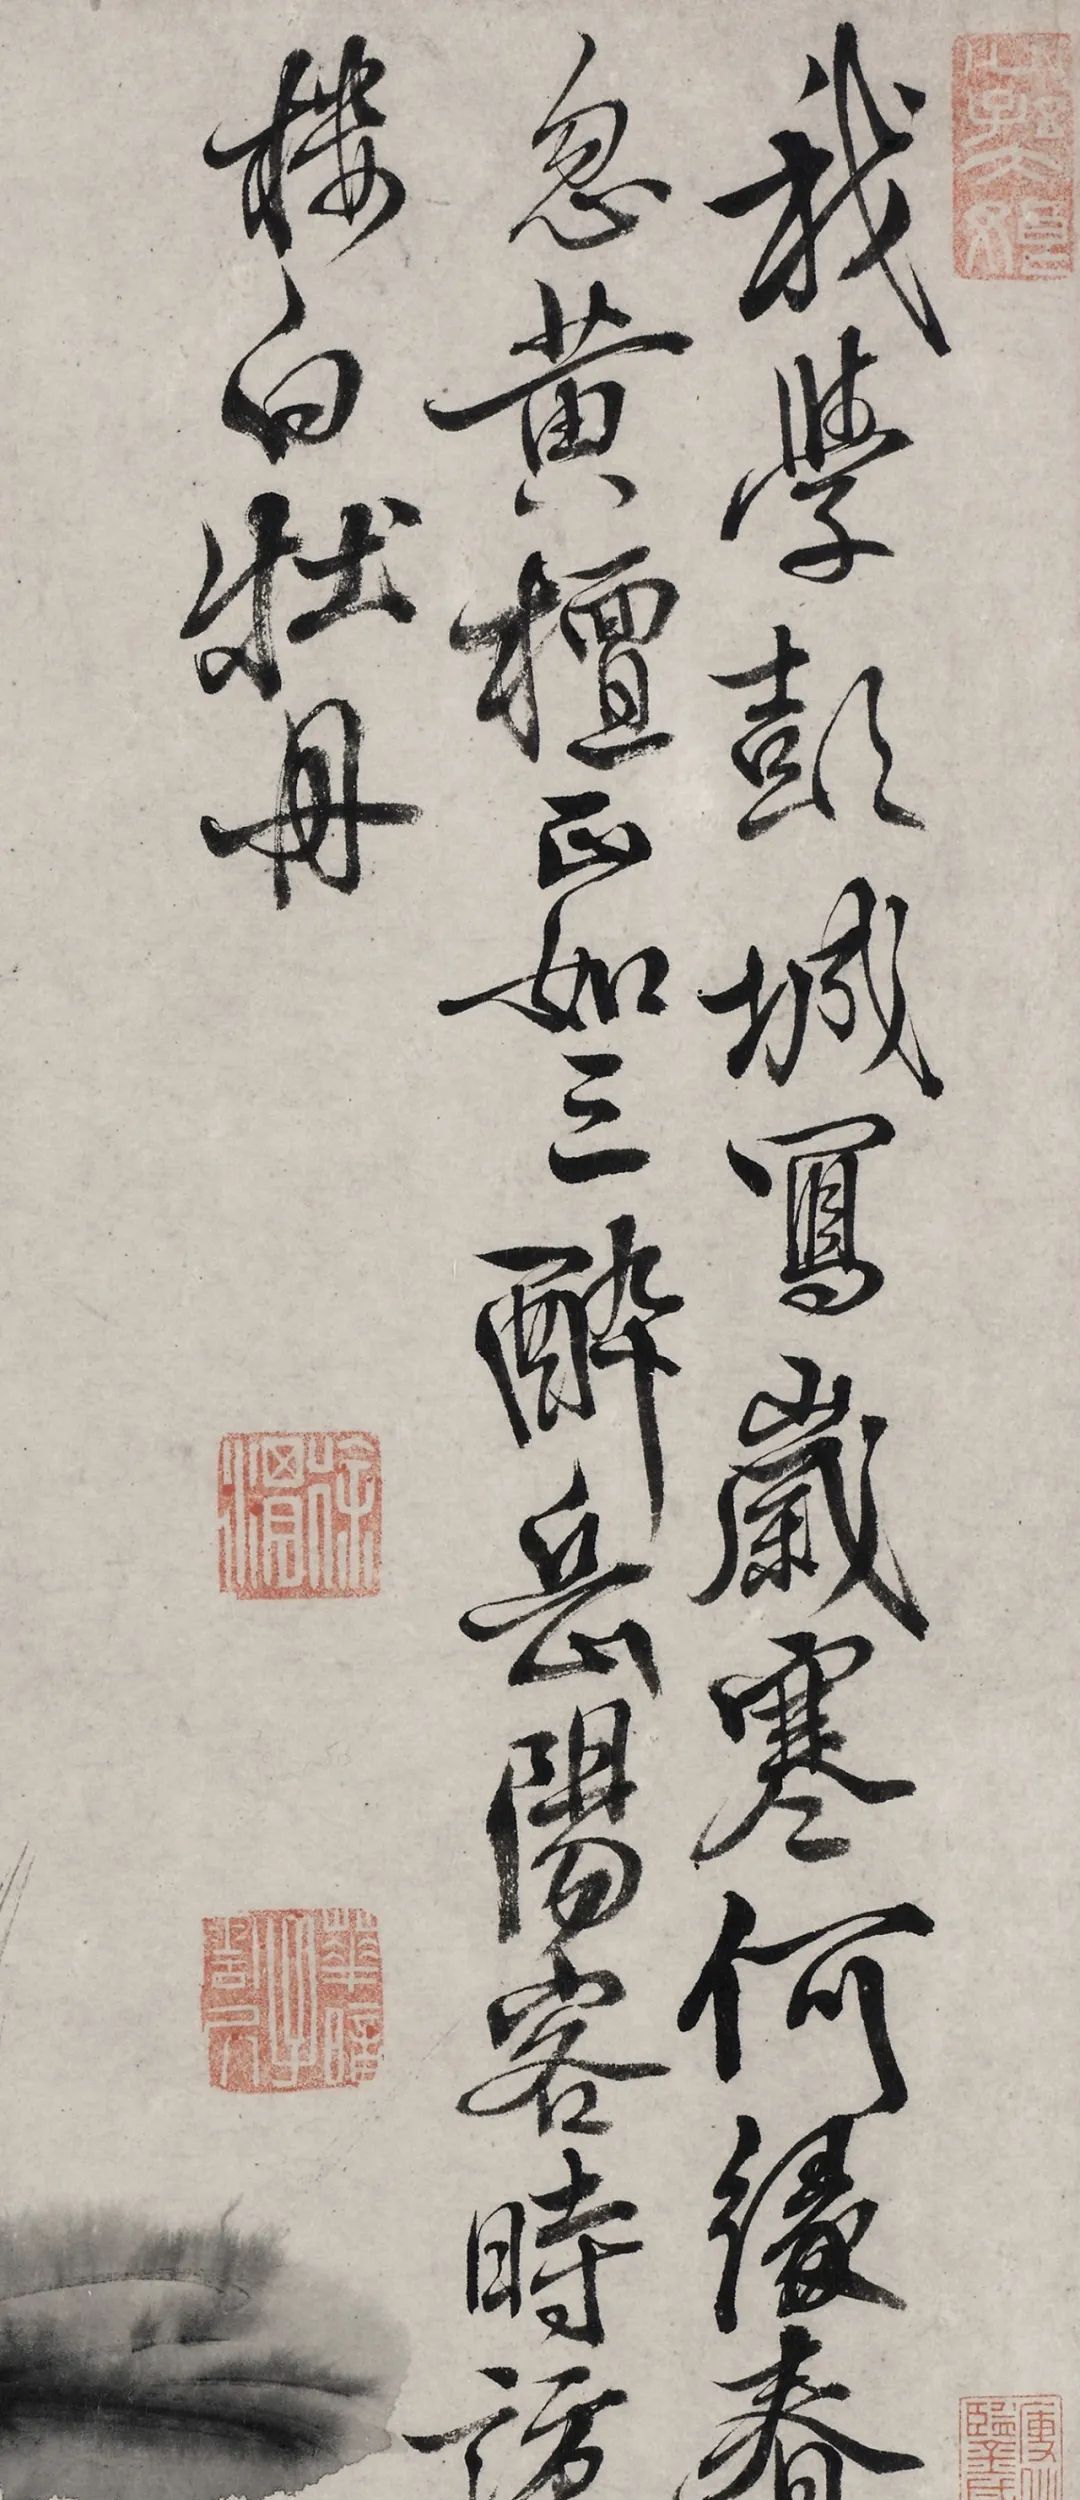 我學彭城寫歲寒何緣春
忽黃檀正如三醉岳陽客時訪
樓白牡丹